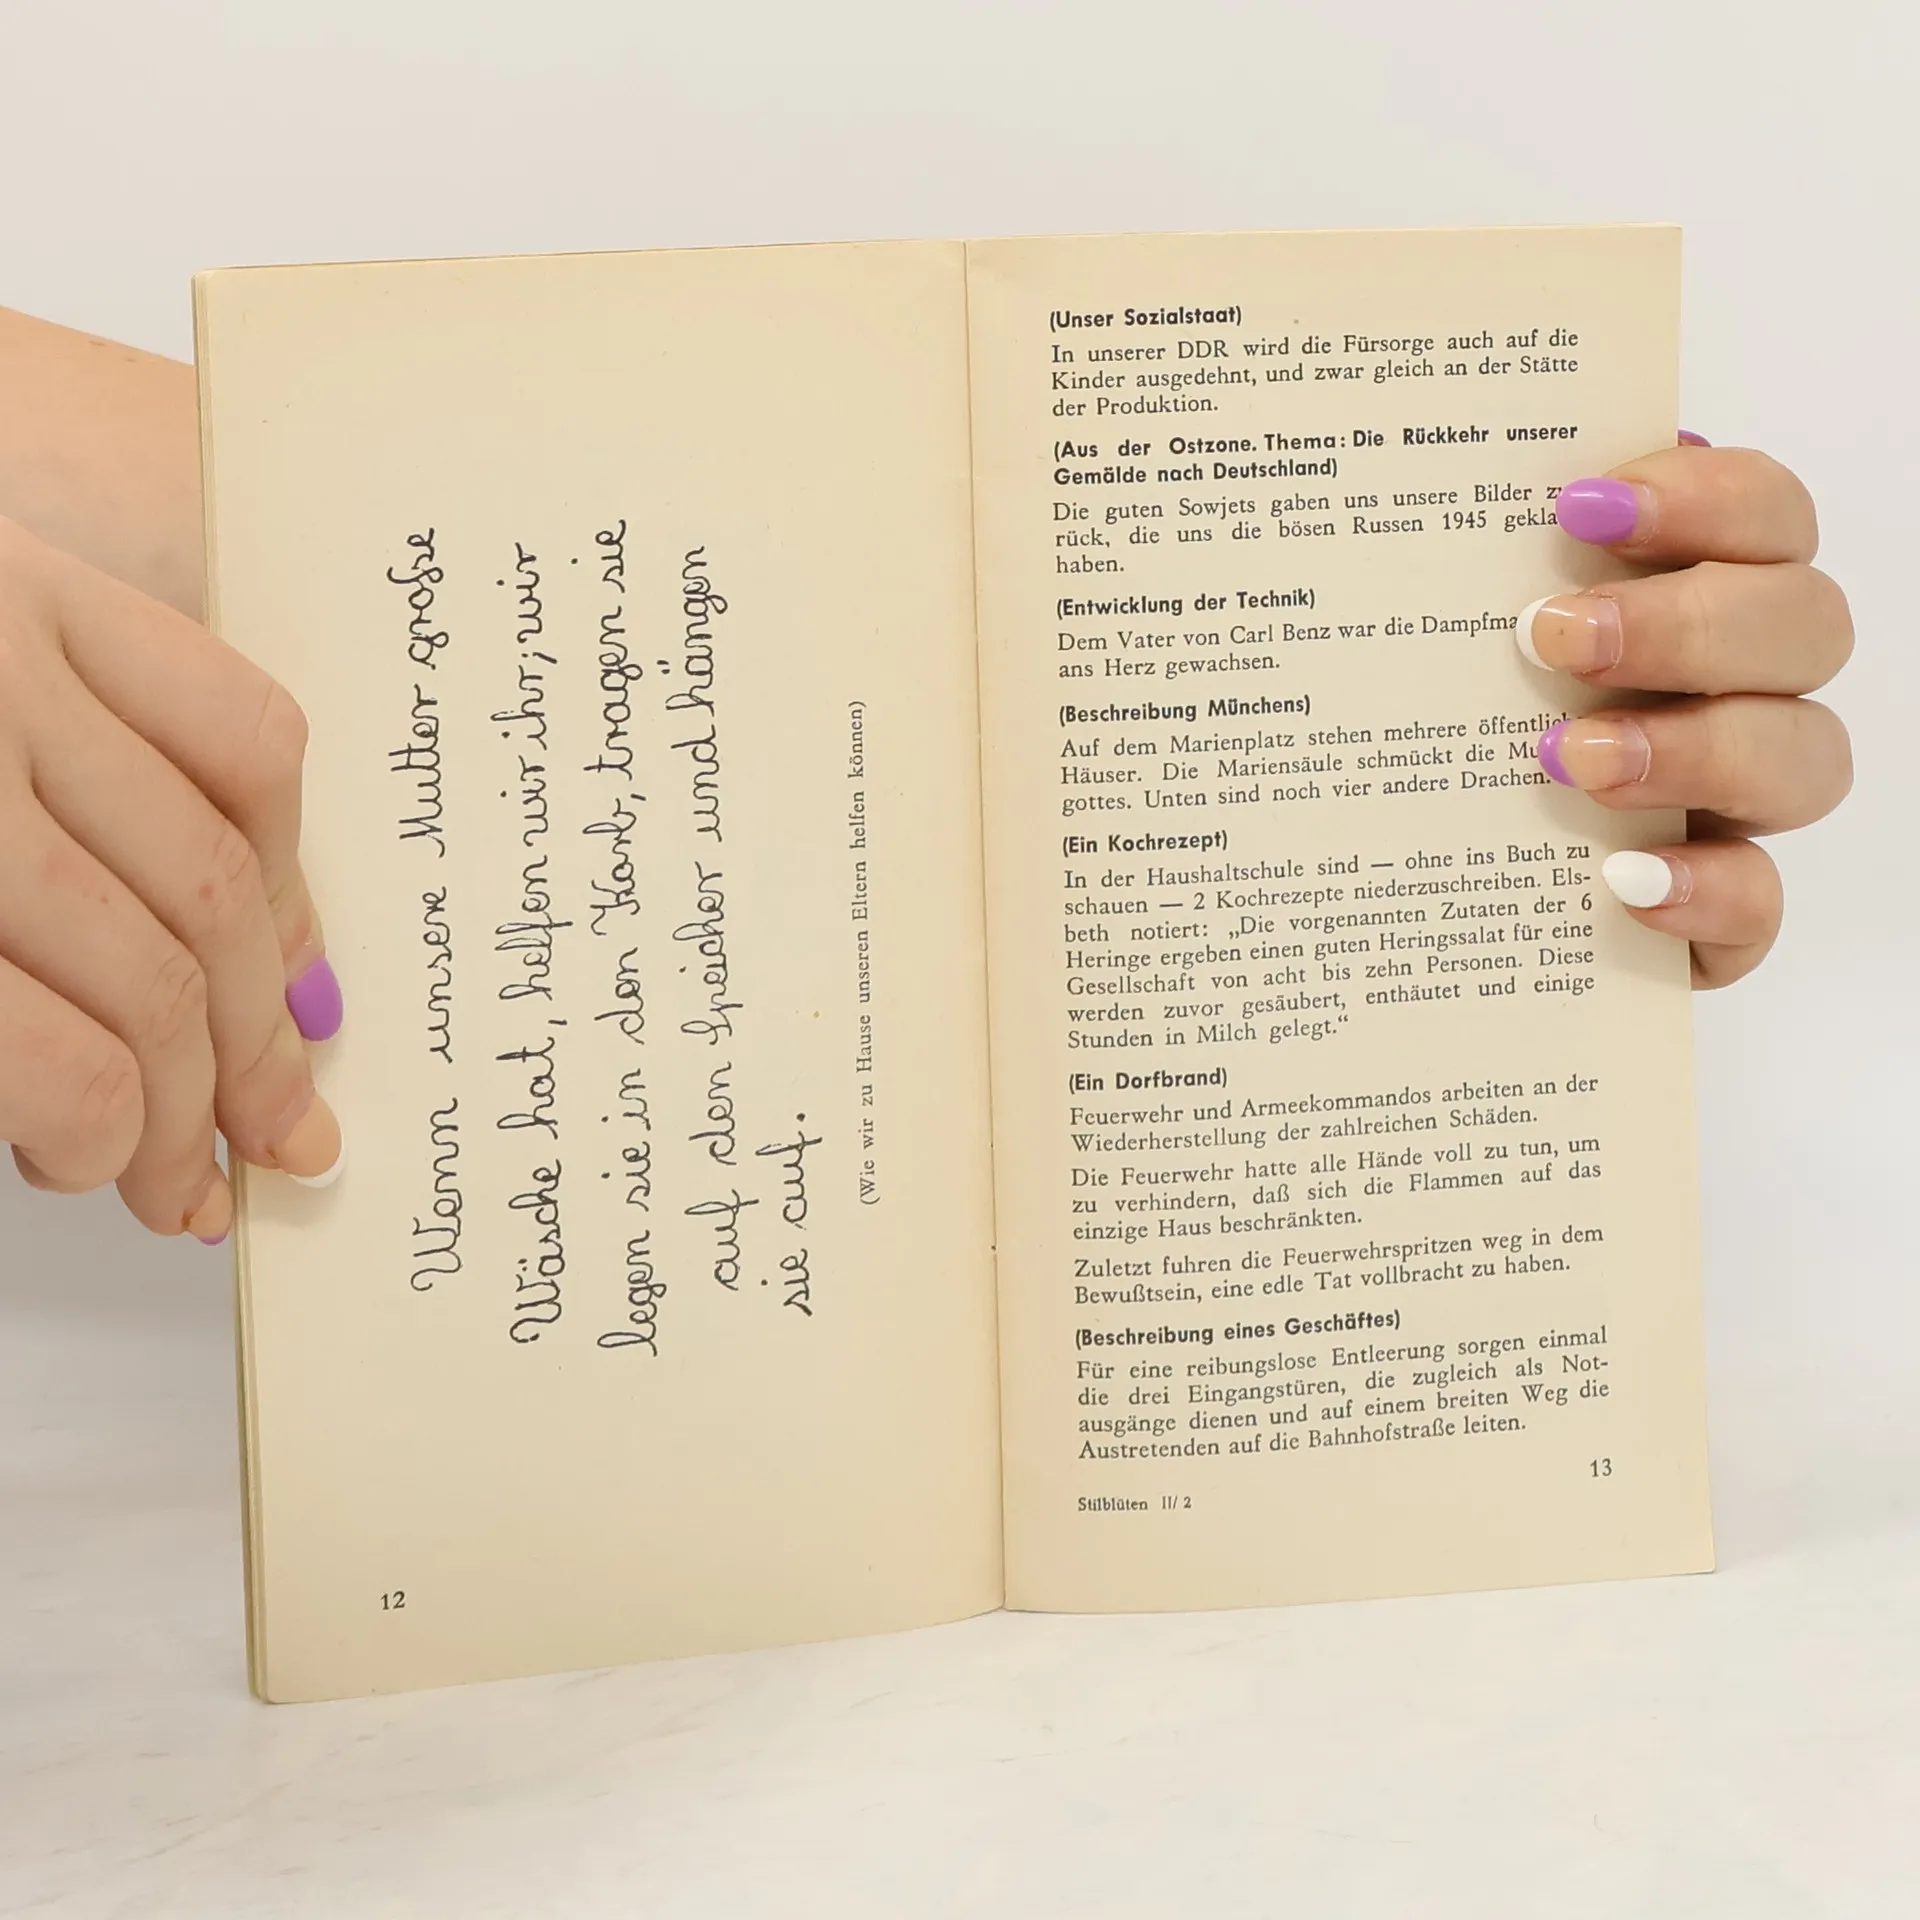 Wenn unsere Mutter große
Wäsche hat, helfen wir ihr; wir
legen sie in den Korb, tragen sie
auf den Speicher und hängen
sie auf.
(Wie wir zu Hause unseren Eltern helfen können)
12
(Unser Sozialstaat)
In unserer DDR wird die Fürsorge auch auf die
Kinder ausgedehnt, und zwar gleich an der Stätte
der Produktion.
(Aus der Ostzone. Thema: Die Rückkehr unserer
Gemälde nach Deutschland)
Die guten Sowjets gaben uns unsere Bilder
rück, die uns die bösen Russen 1945
haben.
(Entwicklung der Technik)
Dem Vater von Carl Benz war die
ans Herz gewachsen.
(Beschreibung Münchens)
Auf dem Marienplatz stehen mehrere
Häuser. Die Mariensäule schmückt die
gottes. Unten sind noch vier andere Drachen.
(Ein Kochrezept)
In der Haushaltschule sind — ohne ins Buch zu
schauen — 2 Kochrezepte niederzuschreiben. Els-
beth notiert: „Die vorgenannten Zutaten der 6
Heringe ergeben einen guten Heringssalat für eine
Gesellschaft von acht bis zehn Personen. Diese
werden zuvor gesäubert, enthäutet und einige
Stunden in Milch gelegt.“
(Ein Dorfbrand)
Feuerwehr und Armeekommandos arbeiten an der
Wiederherstellung der zahlreichen Schäden.
Die Feuerwehr hatte alle Hände voll zu tun, um
zu verhindern, daß sich die Flammen auf das
einzige Haus beschränkten.
Zuletzt fuhren die Feuerwehrspritzen weg in dem
Bewußtsein, eine edle Tat vollbracht zu haben.
(Beschreibung eines Geschäftes)
Für eine reibungslose Entleerung sorgen einmal
die drei Eingangstüren, die zugleich als Not-
ausgänge dienen und auf einem breiten Weg die
Austretenden auf die Bahnhofstraße leiten.
13
Stilblüten II/ 2